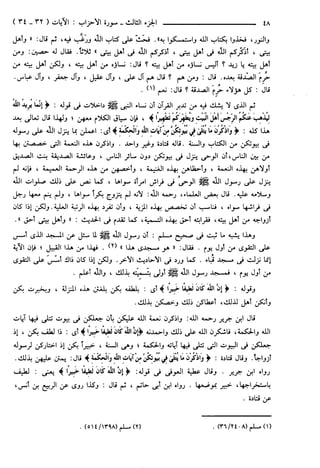 ٤٨ الجزء الثالث - سورة الأحزاب : الآيات ( ٣٢ - ٣٤ )
والنور، فخذوا بكتاب الله واستمسكوا به». فحث على كتاب الله ورغّب فيه، ثم قال: «وأهل
بيتي، أذكّركم الله في أهل بيتي، أذكركم الله في أهل بيتي» ثلاثاً. فقال له حصين: ومن
أهل بيته يا زيد ؟ أليس نساؤه من أهل بيته ؟ قال: نساؤه من أهل بيته، ولكن أهل بيته من
حُرم الصدقة بعده. قال: ومن هم ؟ قال هم آل علي، وآل عقيل، وآل جعفر، وآل عباس.
قال: كل هؤلاء حُرم الصدقة ؟ قال: نعم (١).
ثم الذي لا يشك فيه من تدبر القرآن أن نساء النبي ﷺ داخلات في قوله : ﴿ إِنَّمَا يُرِيدُ اللَّهُ
لِيُذْهِبَ عَنكُمُ الرِّجْسَ أَهْلَ الْبَيْتِ وَيُطَهِّرَكُمْ تَطْهِيرًا ﴾، فإن سياق الكلام معهن؛ ولهذا قال تعالى بعد
هذا كله : ﴿ وَاذْكُرْنَ مَا يُتْلَىٰ فِي بُيُوتِكُنَّ مِنْ آيَاتِ اللَّهِ وَالْحِكْمَةِ ﴾ أي: اعملن بما ينزل الله على رسوله
في بيوتكن من الكتاب والسنة. قاله قتادة وغير واحد. واذكرن هذه النعمة التي خصصتن بها
من بين الناس، أن الوحي ينزل في بيوتكن دون سائر الناس، وعائشة الصديقة بنت الصديق
أولاهن بهذه النعمة، وأحظاهن بهذه الغنيمة، وأخصهن من هذه الرحمة العميمة، فإنه لم
ينزل على رسول الله ﷺ الوحي في فراش امرأة سواها، كما نص على ذلك صلوات الله
وسلامه عليه. قال بعض العلماء، رحمه الله: لأنه لم يتزوج بكراً سواها، ولم ينم معها رجل
في فراشها سواه، فناسب أن تخصص بهذه المزية، وأن تفرد بهذه الرتبة العلية. ولكن إذا كان
أزواجه من أهل بيته، فقرابته أحق بهذه التسمية، كما تقدم في الحديث : « وأهل بيتي أحق ».
وهذا يشبه ما ثبت في صحيح مسلم : أن رسول الله ﷺ لما سئل عن المسجد الذي أسس
على التقوى من أول يوم. فقال: « هو مسجدي هذا » (٢). فهذا من هذا القبيل ؛ فإن الآية
إنما نزلت في مسجد قباء. كما ورد في الأحاديث الأخر. ولكن إذا كان ذاك أسس على التقوى
من أول يوم، فمسجد رسول الله ﷺ أولى بتسميته بذلك، والله أعلم.
وقوله : ﴿ إِنَّ اللَّهَ كَانَ لَطِيفًا خَبِيرًا ﴾ أي : بلطفه بكن بلغتن هذه المنزلة، وبخبرته بكن
وأنكن أهل لذلك، أعطاكن ذلك وخصكن بذلك.
قال ابن جرير رحمه الله: واذكرن نعمة الله عليكن بأن جعلكن في بيوت تتلى فيها آيات
الله والحكمة، فاشكرن الله على ذلك واحمدنه ﴿ إِنَّ اللَّهَ كَانَ لَطِيفًا خَبِيرًا ﴾ أي : ذا لطف بكن، إذ
جعلكن في البيوت التي تتلى فيها آياته والحكمة ؛ وهي السنة، خبيراً بكن إذ اختاركن لرسوله
أزواجاً. وقال قتادة : ﴿ وَاذْكُرْنَ مَا يُتْلَىٰ فِي بُيُوتِكُنَّ مِنْ آيَاتِ اللَّهِ وَالْحِكْمَةِ ﴾ قال: يمتن عليهن بذلك.
رواه ابن جرير. وقال عطية العوفي في قوله : ﴿ إِنَّ اللَّهَ كَانَ لَطِيفًا خَبِيرًا ﴾ يعني : لطيف
باستخراجها، خبير بموضعها. رواه ابن أبي حاتم، ثم قال : وكذا روي عن الربيع بن أنس،
عن قتادة .
(١) مسلم (٢٤٠٨ / ٣٦). (٢) مسلم (١٣٩٨ / ٥١٤).